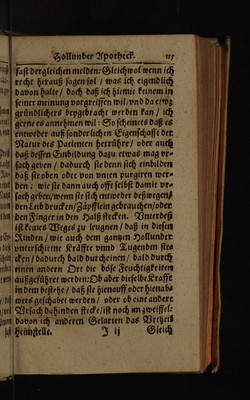 Hollunder Apotheck. 115
fast dergleichen melden: Gleichwol wenn ich
recht herauß sagen sol / was ich eigendlich
davon halte / doch daß ich hiemit keinem in
seiner meinung vorgreiffen wil / und da etwz
gründlichers beygebracht werden kan / ich
gerne es annehmen wil: So scheinets daß es
entweder auß sonderlichen Eigenschafft der
Natur des Patienten herrühre / oder auch
daß dessen Einbildung dazu etwas mag vr-
sach geben / dadurch sie denn sich einbilden
daß sie oben oder von unten purgiren wer-
den: wie sie dann auch offt selbst damit vr-
sach geben / wenn sie sich entweder deßwegen /
den Leib drucken / Zäpflein gebrauchen / oder
den Finger in den Halß stecken. Unterdeß
ist keines Weges zu leugnen / daß in diesen
Rinden / wie auch dem gantzen Hollunder
unterschiedene Kräffte und Tugenden ste-
cken / dadurch bald durch einen / bald durch
einen andern Ort die böse Feuchtigkeiten
außgeführet werden: Ob aber dieselbe Krafft
in dem bestehe / daß sie hienauff oder hienab-
werts geschabet werden / oder ob eine andere
Ursach dahinden stecke / ist noch im zweiffel:
davon ich anderen Gelarten das Vrtheil
heimstelle. J ij Gleich